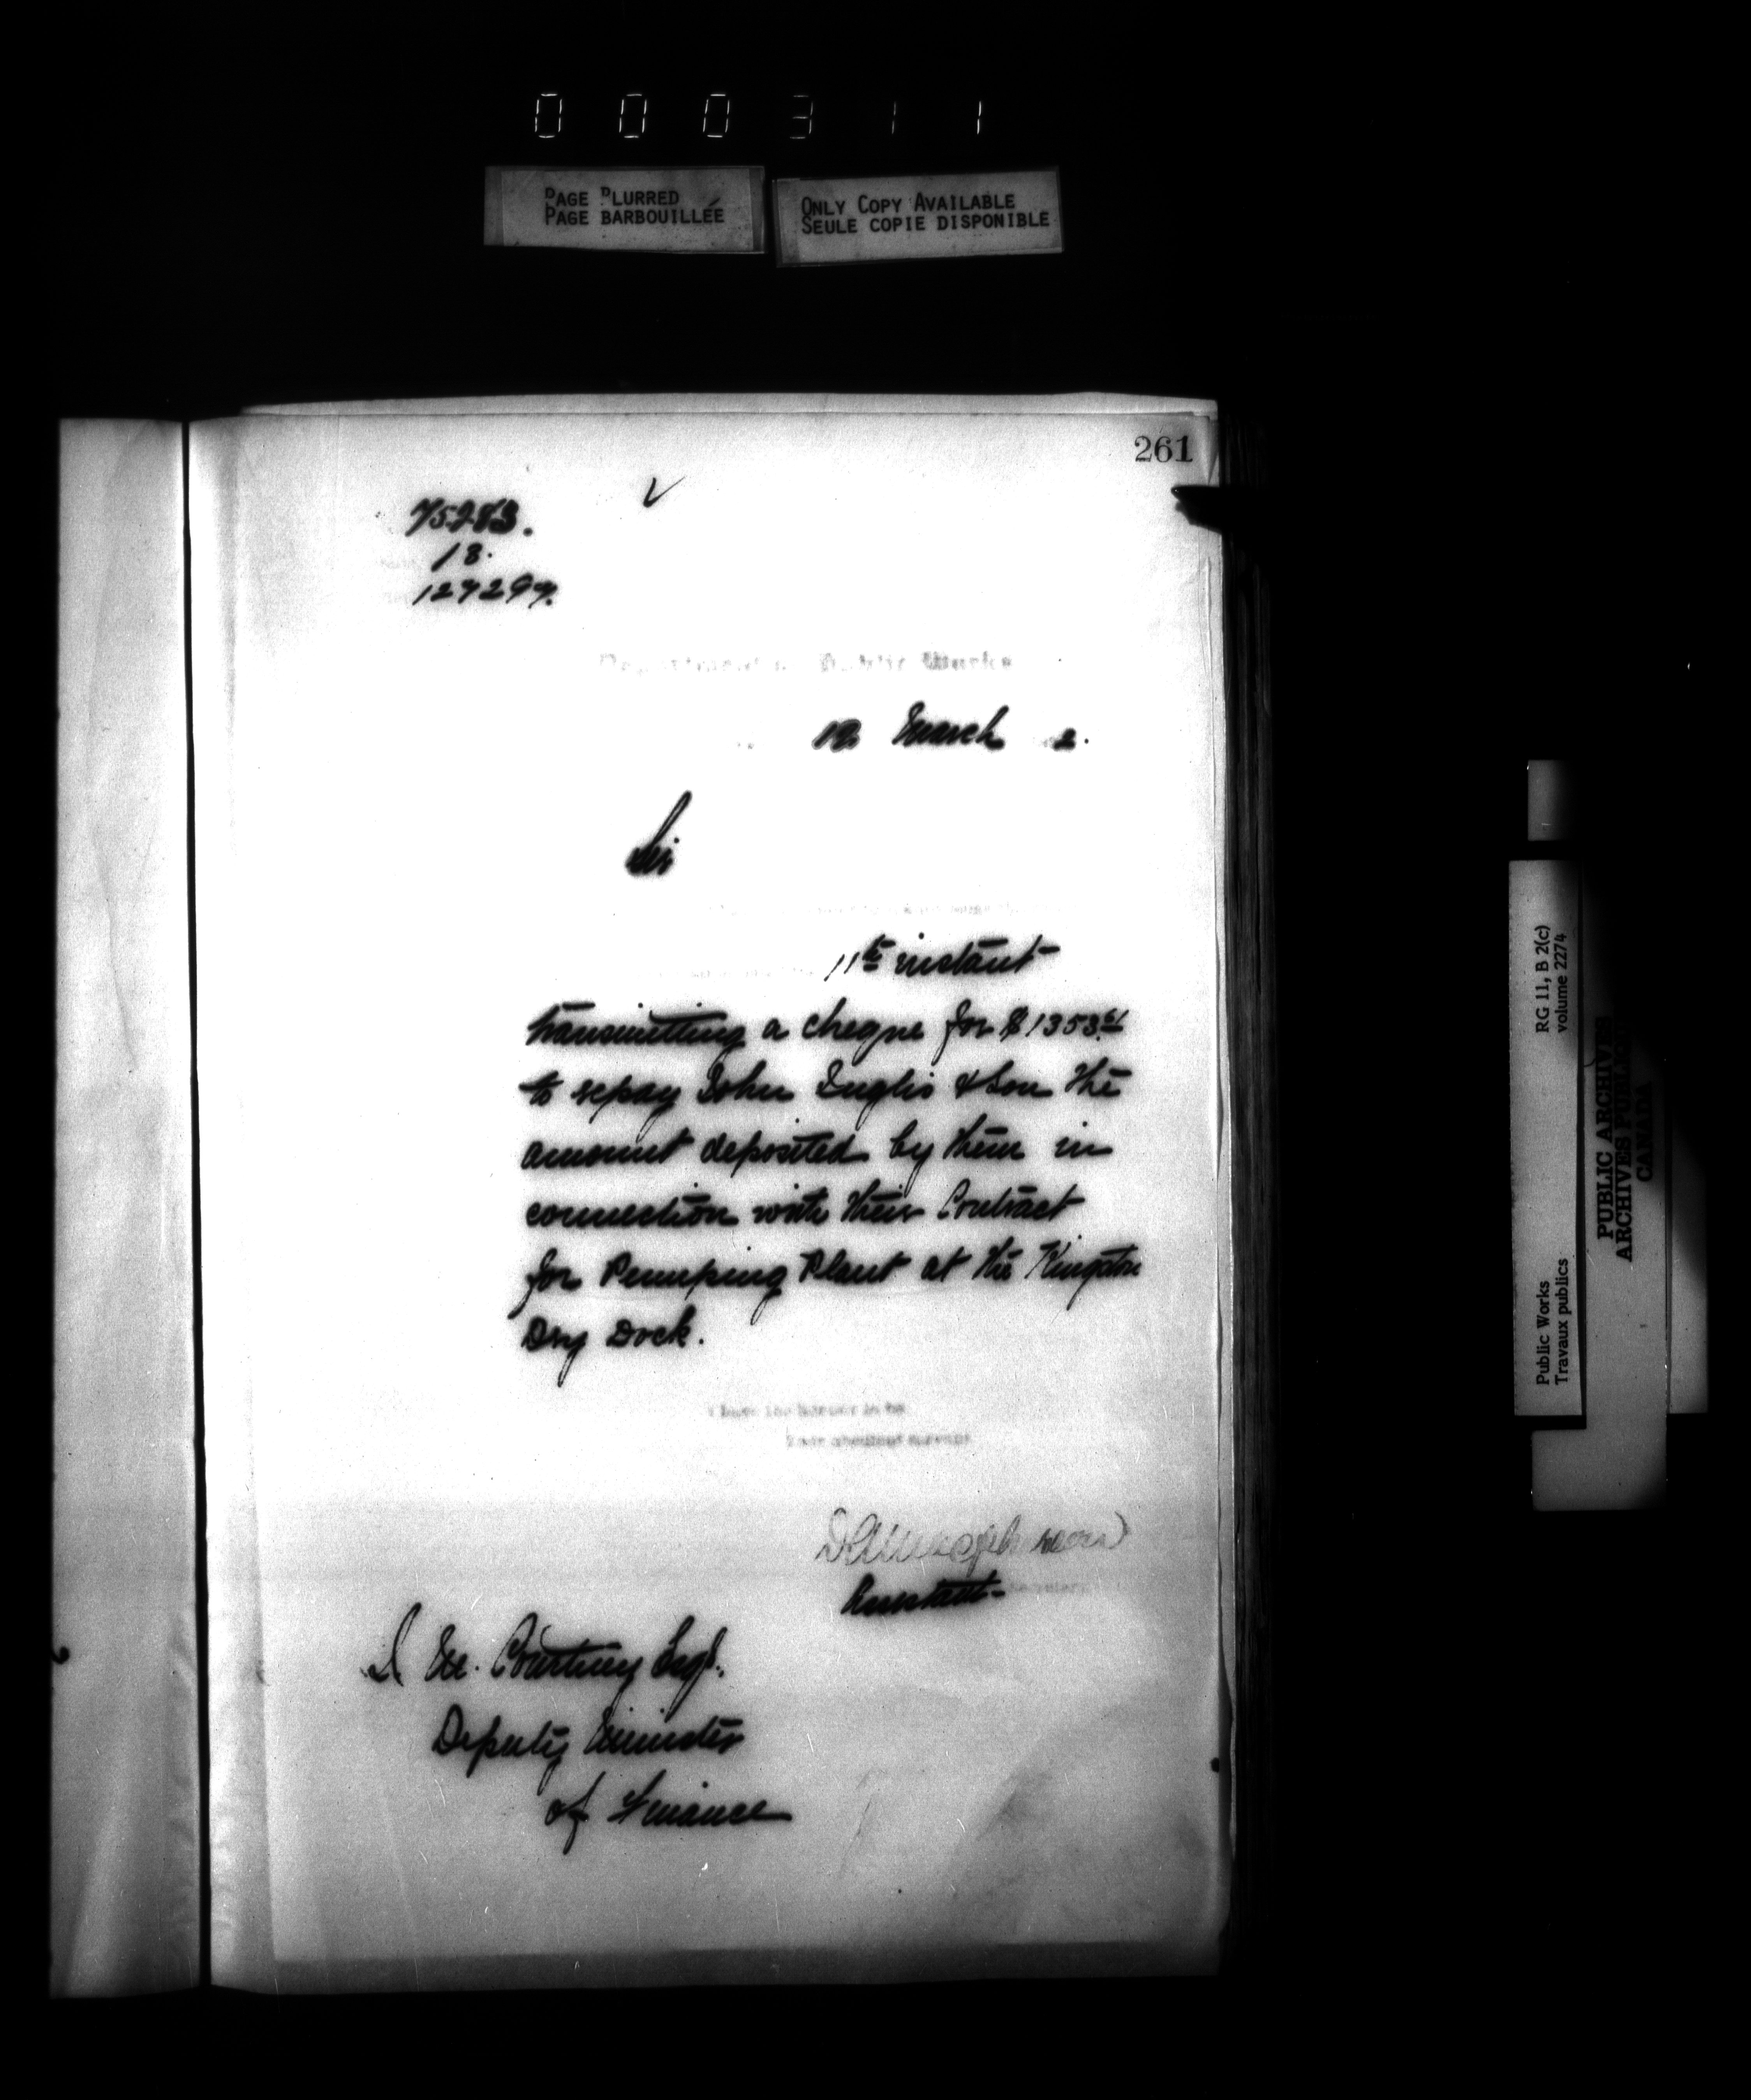 000311
PAGE BLURRED
PAGE BARBOUILLÉE
ONLY COPY AVAILABLE
SEULE COPIE DISPONIBLE
261
75283.
18.
127297.
Department of Public Works
12 March 2.
Sir
11th instant
transmitting a cheque for $1353.61
to repay John Inglis & Son the
amount deposited by them in
connection with their Contract
for Pumping Plant at the Kingston
Dry Dock.
I have the honour to be
Your obedient servant
Secretary
J M. Courtney Esq.
Deputy Minister
of Finance
RG 11, B 2(c)
volume 2274
Public Works
Travaux publics
PUBLIC ARCHIVES
ARCHIVES PUBLIQUES
CANADA